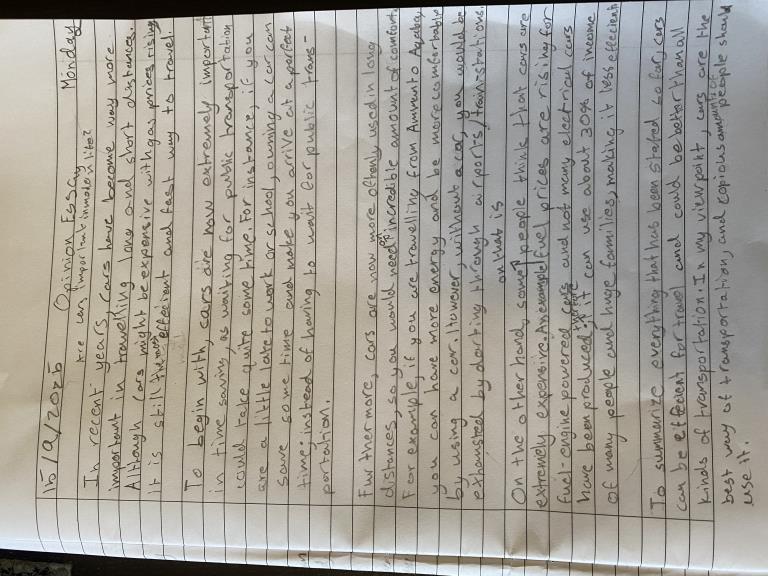 15/9/2025 Opinion Essay Monday
Are cars important in modern life?
In recent years, cars have become way more
important in travelling long and short distances.
Although cars might be expensive with gas prices rising
it is still the most effecient and fast way to travel.
To begin with, cars are now extremely important
in time saving, as waiting for public transportation
could take quite some time. For instance, if you
are a little late to work or school, owning a car can
save some time and make you arrive at a perfect
time; instead of having to wait for public trans-
portation.
Furthermore, cars are now more oftenly used in long
distances, so you would need an incredible amount of comfort.
For example, if you are travelling from Amman to Aqaba,
you can have more energy and be more comfortable
by using a car. However, without a car, you would be
exhausted by darting through airports/train-stations.
On the other hand, some people think that cars are
extremely expensive. An example on that is fuel prices are rising for
fuel-engine powered cars and not many electrical cars
have been produced; therefore it can use about 30% of income
of many people and huge families, making it less effecient
To summarize everything that has been stated so far, cars
can be effecient for travel and could be better than all
kinds of transportation. In my viewpoint, cars are the
best way of transportation, and copious amounts of people should
use it.